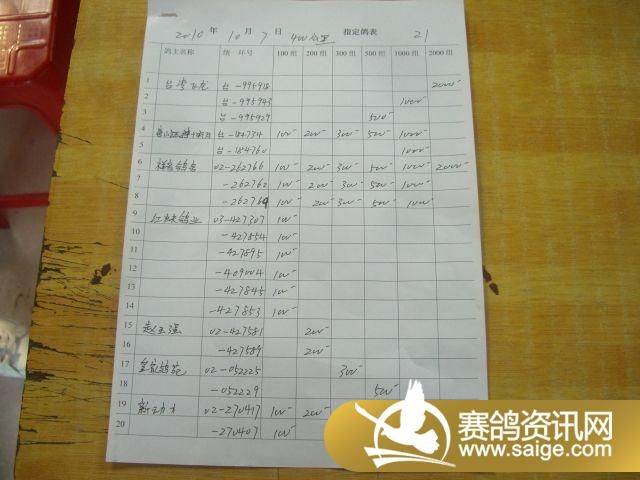 2010 年 10 月 7 日 400公里 指定鸽表 21
鸽主名称 统一环号 100 组 200 组 300 组 500 组 1000 组 2000 组
1 台湾飞龙 台-995918 2000
2 台-995943 1000
3 台-995929 500
4 台-184734 100 200 300 500 1000
5 台-184760 1000
6 02-262766 100 200 300 500 1000 2000
7 -262762 100 200 300 500 1000
8 -262764 100 200 300 500 1000
9 鸽业 03-427307 100
10 -427854 100
11 -427895 100
12 -409004 100
13 -427845 100
14 -427853 100
15 赵玉强 02-427581 200
16 -427589 200
17 皇家鸽苑 02-052225 300
18 -052229 500
19 新动力 02-270417 100 200
20 -270407 100
赛鸽资讯网
www.saige.com